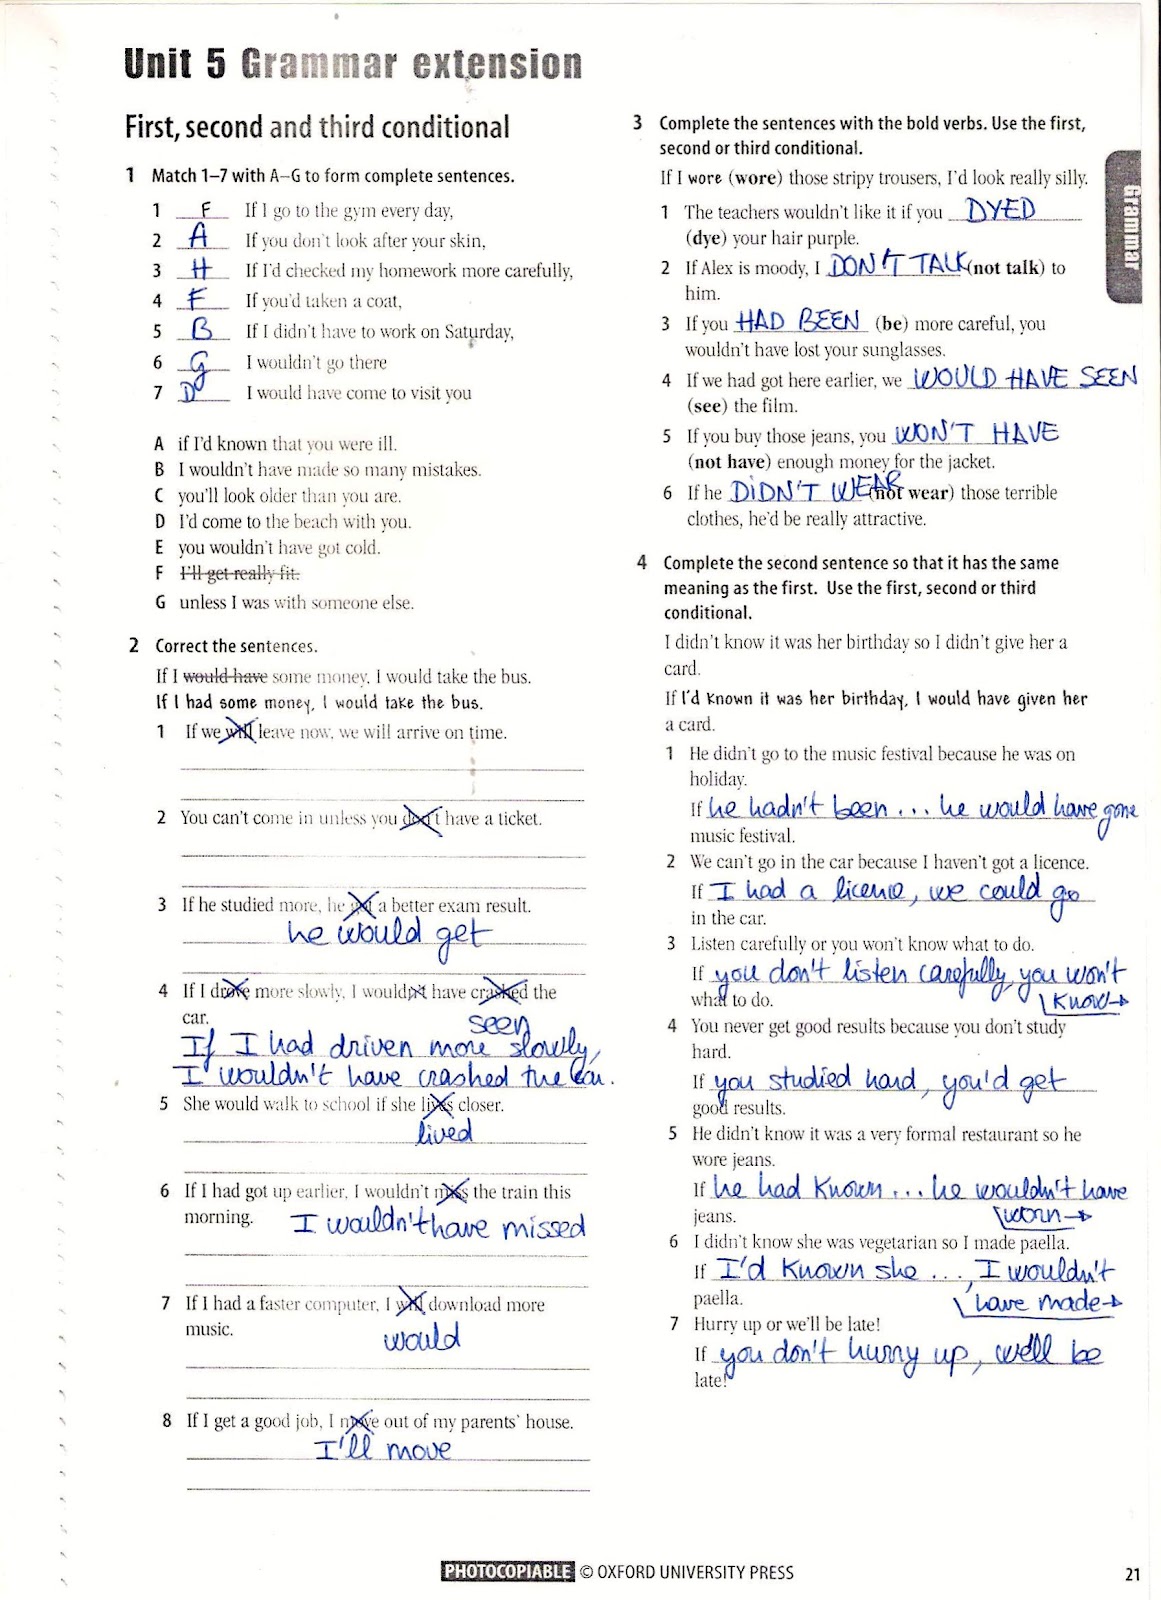 Unit 5 Grammar extension
First, second and third conditional
1 Match 1–7 with A–G to form complete sentences.
1 F If I go to the gym every day,
2 A If you don't look after your skin,
3 H If I'd checked my homework more carefully,
4 F If you'd taken a coat,
5 B If I didn't have to work on Saturday,
6 G I wouldn't go there
7 D I would have come to visit you
A if I'd known that you were ill.
B I wouldn't have made so many mistakes.
C you'll look older than you are.
D I'd come to the beach with you.
E you wouldn't have got cold.
F I'll get really fit.
G unless I was with someone else.
2 Correct the sentences.
If I would have some money, I would take the bus.
If I had some money, I would take the bus.
1 If we will leave now, we will arrive on time.
2 You can't come in unless you don't have a ticket.
3 If he studied more, he got a better exam result.
he would get
4 If I drove more slowly, I wouldn't have crashed the
car.
seen
If I had driven more slowly,
I wouldn't have crashed the car.
5 She would walk to school if she lives closer.
lived
6 If I had got up earlier, I wouldn't miss the train this
morning. I wouldn't have missed
7 If I had a faster computer, I will download more
music.
would
8 If I get a good job, I move out of my parents' house.
I'll move
3 Complete the sentences with the bold verbs. Use the first,
second or third conditional.
If I wore (wore) those stripy trousers, I'd look really silly.
1 The teachers wouldn't like it if you DYED
(dye) your hair purple.
2 If Alex is moody, I DON'T TALK (not talk) to
him.
3 If you HAD BEEN (be) more careful, you
wouldn't have lost your sunglasses.
4 If we had got here earlier, we WOULD HAVE SEEN
(see) the film.
5 If you buy those jeans, you WON'T HAVE
(not have) enough money for the jacket.
6 If he DIDN'T WEAR (not wear) those terrible
clothes, he'd be really attractive.
4 Complete the second sentence so that it has the same
meaning as the first. Use the first, second or third
conditional.
I didn't know it was her birthday so I didn't give her a
card.
If I'd known it was her birthday, I would have given her
a card.
1 He didn't go to the music festival because he was on
holiday.
If he hadn't been ... he would have gone
music festival.
2 We can't go in the car because I haven't got a licence.
If I had a licence, we could go
in the car.
3 Listen carefully or you won't know what to do.
If you don't listen carefully, you won't
what to do. know→
4 You never get good results because you don't study
hard.
If you studied hard, you'd get
good results.
5 He didn't know it was a very formal restaurant so he
wore jeans.
If he had known ... he wouldn't have
jeans. worn→
6 I didn't know she was vegetarian so I made paella.
If I'd known she ..., I wouldn't
paella. have made→
7 Hurry up or we'll be late!
If you don't hurry up, we'll be
late!
Grammar
PHOTOCOPIABLE © OXFORD UNIVERSITY PRESS
21